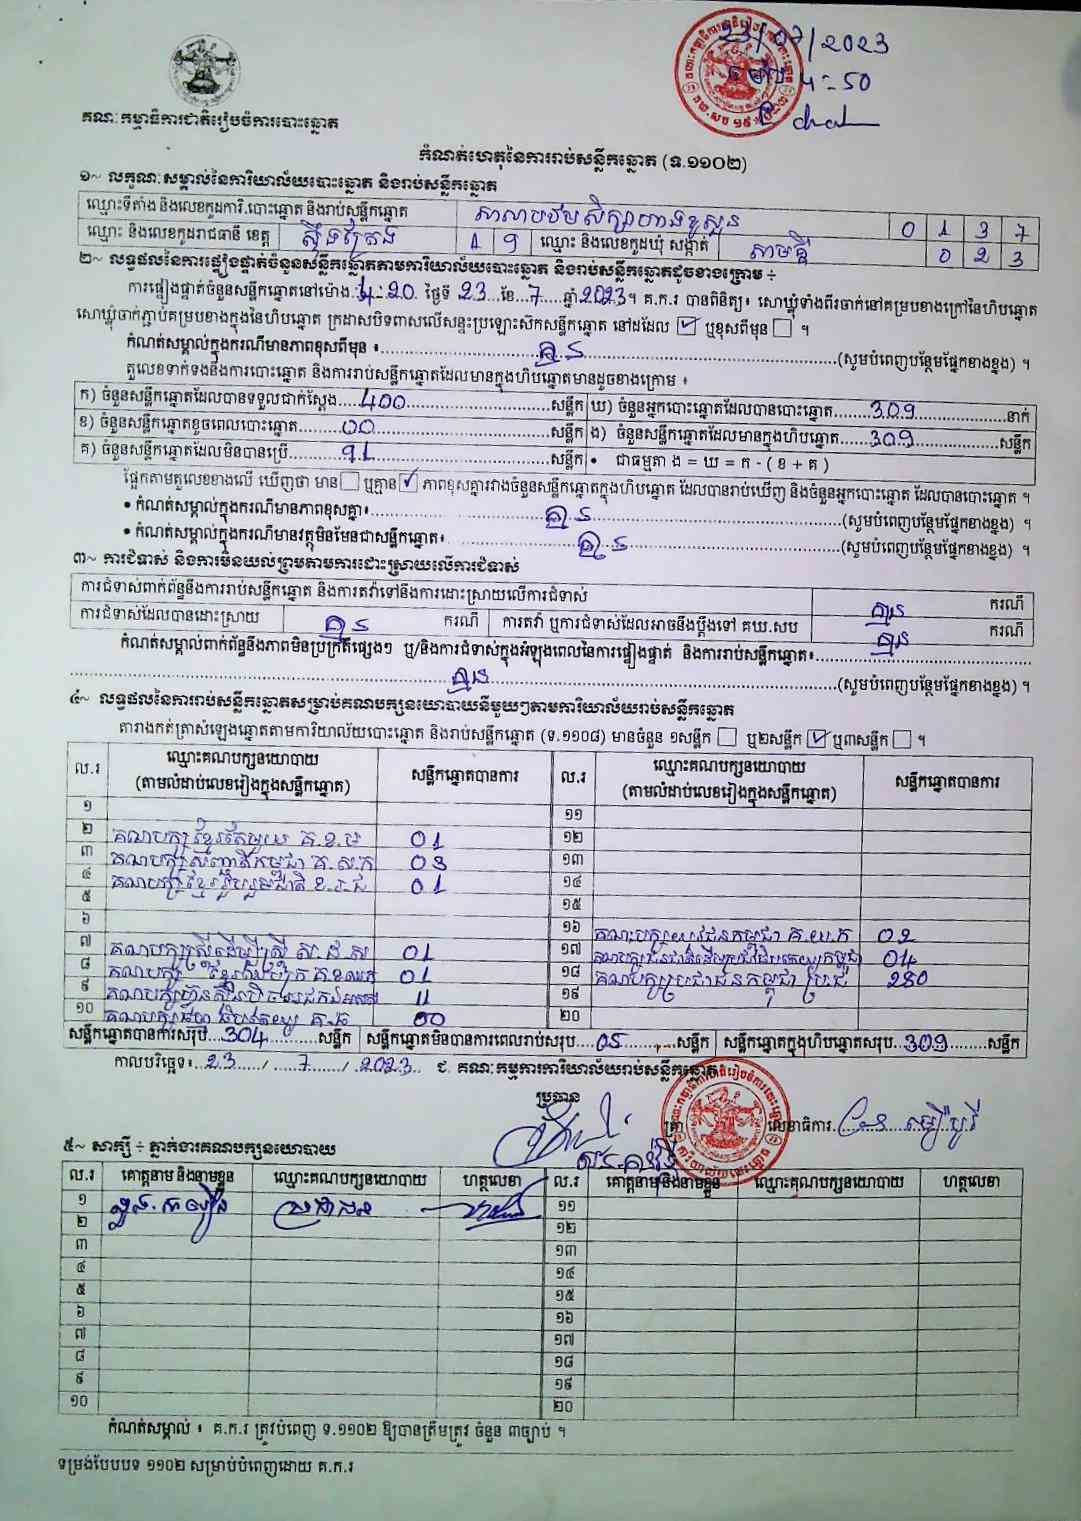 23/07/2023
ម៉ោង 4:50
គណៈកម្មាធិការជាតិរៀបចំការបោះឆ្នោត
កំណត់ហេតុនៃការរាប់សន្លឹកឆ្នោត (ទ.១១០២)
១~ លក្ខណៈសម្គាល់នៃការិយាល័យបោះឆ្នោត និងរាប់សន្លឹកឆ្នោត
ឈ្មោះទីតាំង និងលេខកូដការិ.បោះឆ្នោត និងរាប់សន្លឹកឆ្នោត សាលាបឋមសិក្សា 0 1 3 7
ឈ្មោះ និងលេខកូដរាជធានី ខេត្ត ស្ទឹងត្រែង 1 9 ឈ្មោះ និងលេខកូដឃុំ សង្កាត់ 0 2 3
២~ លទ្ធផលនៃការផ្ទៀងផ្ទាត់ចំនួនសន្លឹកឆ្នោតតាមការិយាល័យបោះឆ្នោត និងរាប់សន្លឹកឆ្នោតដូចខាងក្រោម ÷
ការផ្ទៀងផ្ទាត់ចំនួនសន្លឹកឆ្នោតនៅម៉ោង 4:20 ថ្ងៃទី 23 ខែ 7 ឆ្នាំ 2023។ គ.ក.រ បានពិនិត្យ៖ សោឃ្លុំទាំងពីរចាក់នៅគម្របខាងក្រៅនៃហិបឆ្នោត
សោឃ្លុំចាក់ភ្ជាប់គម្របខាងក្នុងនៃហិបឆ្នោត ក្រដាសបិទពាសលើសន្ទះប្រឡោះស៊កសន្លឹកឆ្នោត នៅដដែល ☑ ឬខុសពីមុន ☐ ។
កំណត់សម្គាល់ក្នុងករណីមានភាពខុសពីមុន ៖ គ្មាន (សូមបំពេញបន្ថែមផ្នែកខាងខ្នង) ។
តួលេខទាក់ទងនឹងការបោះឆ្នោត និងការរាប់សន្លឹកឆ្នោតដែលមានក្នុងហិបឆ្នោតមានដូចខាងក្រោម ៖
ក) ចំនួនសន្លឹកឆ្នោតដែលបានទទួលជាក់ស្តែង 400 សន្លឹក ឃ) ចំនួនអ្នកបោះឆ្នោតដែលបានបោះឆ្នោត 309 នាក់
ខ) ចំនួនសន្លឹកឆ្នោតខូចពេលបោះឆ្នោត 00 សន្លឹក ង) ចំនួនសន្លឹកឆ្នោតដែលមានក្នុងហិបឆ្នោត 309 សន្លឹក
គ) ចំនួនសន្លឹកឆ្នោតដែលមិនបានប្រើ 91 សន្លឹក • ជាធម្មតា ង = ឃ = ក - ( ខ + គ )
ផ្អែកតាមតួលេខខាងលើ ឃើញថា មាន ☐ ឬគ្មាន ☑ ភាពខុសគ្នារវាងចំនួនសន្លឹកឆ្នោតក្នុងហិបឆ្នោត ដែលបានរាប់ឃើញ និងចំនួនអ្នកបោះឆ្នោត ដែលបានបោះឆ្នោត ។
• កំណត់សម្គាល់ក្នុងករណីមានភាពខុសគ្នា៖ គ្មាន (សូមបំពេញបន្ថែមផ្នែកខាងខ្នង) ។
• កំណត់សម្គាល់ក្នុងករណីមានវត្ថុមិនមែនជាសន្លឹកឆ្នោត៖ គ្មាន (សូមបំពេញបន្ថែមផ្នែកខាងខ្នង) ។
៣~ ការជំទាស់ និងការមិនយល់ព្រមតាមការដោះស្រាយលើការជំទាស់
ការជំទាស់ពាក់ព័ន្ធនឹងការរាប់សន្លឹកឆ្នោត និងការតវ៉ាទៅនឹងការដោះស្រាយលើការជំទាស់ គ្មាន ករណី
ការជំទាស់ដែលបានដោះស្រាយ គ្មាន ករណី ការតវ៉ា ឬការជំទាស់ដែលអាចនឹងប្តឹងទៅ គឃ.សប គ្មាន ករណី
កំណត់សម្គាល់ពាក់ព័ន្ធនឹងភាពមិនប្រក្រតីផ្សេងៗ ឬ/និងការជំទាស់ក្នុងអំឡុងពេលនៃការផ្ទៀងផ្ទាត់ និងការរាប់សន្លឹកឆ្នោត៖
គ្មាន (សូមបំពេញបន្ថែមផ្នែកខាងខ្នង) ។
៤~ លទ្ធផលនៃការរាប់សន្លឹកឆ្នោតសម្រាប់គណបក្សនយោបាយនីមួយៗតាមការិយាល័យរាប់សន្លឹកឆ្នោត
តារាងកត់ត្រាសំឡេងឆ្នោតតាមការិយាល័យបោះឆ្នោត និងរាប់សន្លឹកឆ្នោត (ទ.១១០៨) មានចំនួន ១សន្លឹក ☐ ឬ២សន្លឹក ☑ ឬ៣សន្លឹក ☐ ។
ល.រ ឈ្មោះគណបក្សនយោបាយ សន្លឹកឆ្នោតបានការ ល.រ ឈ្មោះគណបក្សនយោបាយ សន្លឹកឆ្នោតបានការ
(តាមលំដាប់លេខរៀងក្នុងសន្លឹកឆ្នោត) (តាមលំដាប់លេខរៀងក្នុងសន្លឹកឆ្នោត)
១ ១១
២ គណបក្សខ្មែរតែមួយ គ.ខ.ម 01 ១២
៣ គណបក្សសញ្ជាតិកម្ពុជា គ.ស.ក 03 ១៣
៤ គណបក្សខ្មែររួបរួមជាតិ ខ.រ.ជ 01 ១៤
៥ ១៥
៦ ១៦ គណបក្សយុវជនកម្ពុជា គ.យ.ក 02
៧ គណបក្សស្ត្រីដើម្បីស្ត្រី ស.ដ.ស 01 ១៧ 04
៨ គណបក្ស 01 ១៨ គណបក្សប្រជាជនកម្ពុជា ប្រ.ជ 280
៩ 11 ១៩
១០ ២០
សន្លឹកឆ្នោតបានការសរុប 304 សន្លឹក សន្លឹកឆ្នោតមិនបានការពេលរាប់សរុប 05 សន្លឹក សន្លឹកឆ្នោតក្នុងហិបឆ្នោតសរុប 309 សន្លឹក
កាលបរិច្ឆេទ៖ 23 / 7 / 2023 ជ. គណៈកម្មការការិយាល័យរាប់សន្លឹកឆ្នោត
ប្រធាន
ត្រា លេខាធិការ
៥~ សាក្សី ÷ ភ្នាក់ងារគណបក្សនយោបាយ
ល.រ គោត្តនាម និងនាមខ្លួន ឈ្មោះគណបក្សនយោបាយ ហត្ថលេខា ល.រ គោត្តនាម និងនាមខ្លួន ឈ្មោះគណបក្សនយោបាយ ហត្ថលេខា
១ ប្រជាជន ១១
២ ១២
៣ ១៣
៤ ១៤
៥ ១៥
៦ ១៦
៧ ១៧
៨ ១៨
៩ ១៩
១០ ២០
កំណត់សម្គាល់ ៖ គ.ក.រ ត្រូវបំពេញ ទ.១១០២ ឱ្យបានត្រឹមត្រូវ ចំនួន ៣ច្បាប់ ។
ទម្រង់បែបបទ ១១០២ សម្រាប់បំពេញដោយ គ.ក.រ